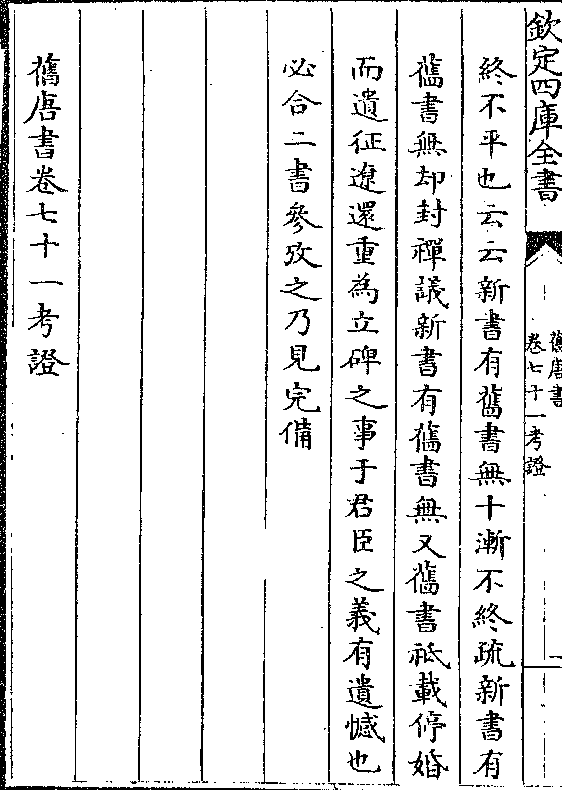 欽定四庫全書
舊唐書
卷七十一考證
終不平也云云新書有舊書無十漸不終疏新書有
舊書無却封禪議新書有舊書無又舊書祇載停婚
而遺征遼還重為立碑之事于君臣之義有遺憾也
必合二書參攷之乃見完備
舊唐書卷七十一考證